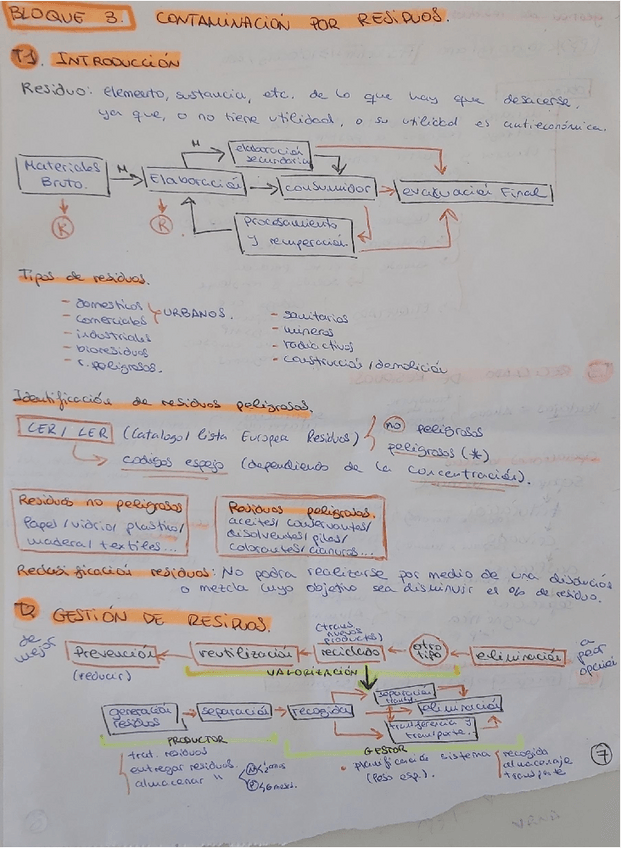 BLOQUE 3. CONTAMINACIÓN POR RESIDUOS.
T.1. INTRODUCCIÓN
Residuo: elemento, sustancia, etc. de lo que hay que desacerse,
ya que, o no tiene utilidad, o su utilidad es antieconómica.
Materiales Bruto.
M
Elaboración
M
elaboración secundaria
consumidor
evacuación Final
R
R
procesamiento y recuperación
Tipos de residuos.
- domesticos
- comerciales
URBANOS.
- industriales
- bioresiduos
- r. peligrosos.
- sanitarios
- mineros
- radiactivos
- construcción / demolición
Identificación de residuos peligrosos.
CER / LER (Catalogo / lista Europea Residuos)
no peligrosos
peligrosos (*)
codigos espejo (dependiendo de la concentración).
Residuos no peligrosos
Papel / vidrio / plastico /
madera / textiles...
Residuos peligrosos.
aceites / conservantes /
disolventes / pilas /
colorantes / cianuros...
Reclasificación residuos: No podra realizarse por medio de una disolución
o mezcla cuyo objetivo sea disminuir el % de residuo.
T2 GESTIÓN DE RESIDUOS.
de mejor
Prevención
(reducir)
reutilización
(trans. nuevos productos)
reciclado
otro tipo
eliminación
a peor opción
VALORIZACIÓN
generación residuos
separación
recogida
separación
eliminación
transferencia y transporte.
PRODUCTOR
GESTOR
trat. residuos
entregar residuos
almacenar "
planificación sistema
recogida
almacenaje
transporte
7